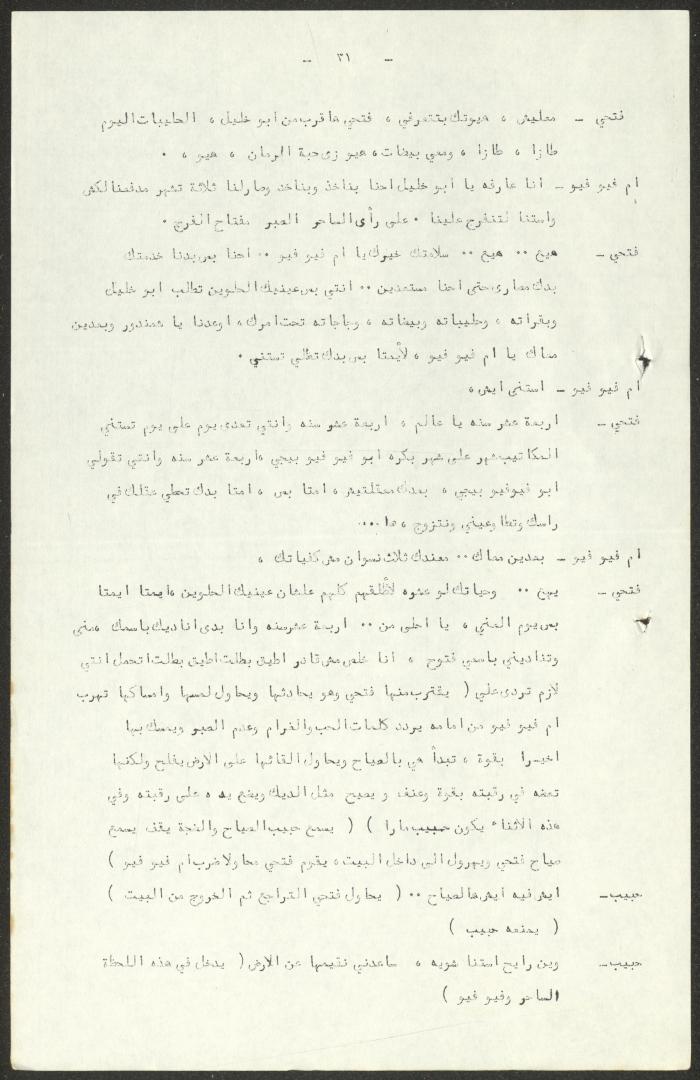 - ٣١ -
فتحي - معليش ، هيوتك بتتعرفي ، فتحي هاقرب من ابو خليل ، الحليبات اليوم
طازا ، طازا ، ومعي بيضات ، هيو زى حبة الرمان ، هيو ، .
ام فيو فيو - انا عارفه يا ابو خليل احنا بناخذ وبناخد وصارلنا ثلاثة تشهر مدفعنالكش
واستنا لتنفرج علينا . على رأى الساحر الصبر مفتاح الفرج .
فتحي - هيع .. هيع .. سلامتك خيرك يا ام فيو فيو .. احنا بس بدنا خدمتك
بدك مصارى حتى احنا مستعدين .. انتي بس عينيك الحلوين تطالب ابو خليل
وبقراته ، وحليباته وبيضاته ، وجاجاته تحت امرك ، اوعدنا يا غمندور وبعدين
معاك يا ام فيو فيو ، لأيمتا بس بدك تظلي تستني .
ام فيو فيو - استنى ايش ،
فتحي - اربعة عشر سنه يا عالم ، اربعة عشر سنه وانتي تعدى يوم على يوم تستني
المكاتيب شهر على شهر بكره ابو فيو فيو بيجي ، اربعة عشر سنه وانتي تقولي
ابو فيو فيو بيجي ، بعدك معقلتيش ، امتا بس ، امتا بدك تحطي عقلك في
راسك وتطاوعيني ونتزوج ، ها ...
ام فيو فيو - بعدين معاك .. معندك ثلاث نسوان مش كفياتك ،
فتحي - يهع .. وحياتك لو عشره لأطلقهم كلهم علشان عينيك الحلوين ، ايمتا ايمتا
بس يوم المني ، يا احلى من .. اربعة عشر سنه وانا بدى اناديك باسمك ، مني
وتناديني باسمي فتوح ، انا خلص مش قادر اطيق بطلت اطيق بطلت اتحمل انتي
لازم تردى علي ( يقترب منها فتحي وهو يحادثها ويحاول لمسها وامساكها تهرب
ام فيو فيو من امامه يردد كلمات الحب والغرام وعدم الصبر ويمسك بها
اخيرا بقوة ، تبدأ هي بالصياح ويحاول القائها على الارض يفلح ولكنها
تعضه في رقبته بقوة وعنف و يصيح مثل الديك ويضع يده على رقبته وفي
هذه الاثناء يكون حبيب مارا ) ( يسمع حبيب الصياح والضجة يقف يسمع
صياح فتحي ويهرول الى داخل البيت ، يقوم فتحي محاولا ضرب ام فيو فيو )
حبيب - ايش فيه ايش هالصياح .. ( يحاول فتحي التراجع ثم الخروج من البيت )
( يمنعه حبيب )
حبيب - وين رايح استنا شويه ، ساعدني نقيمها عن الارض ( يدخل في هذه اللحظة
الساحر وفيو فيو )